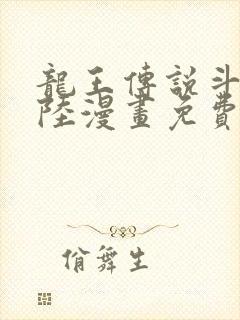 龍王傳說斗
陸漫畫免費
俏舞生